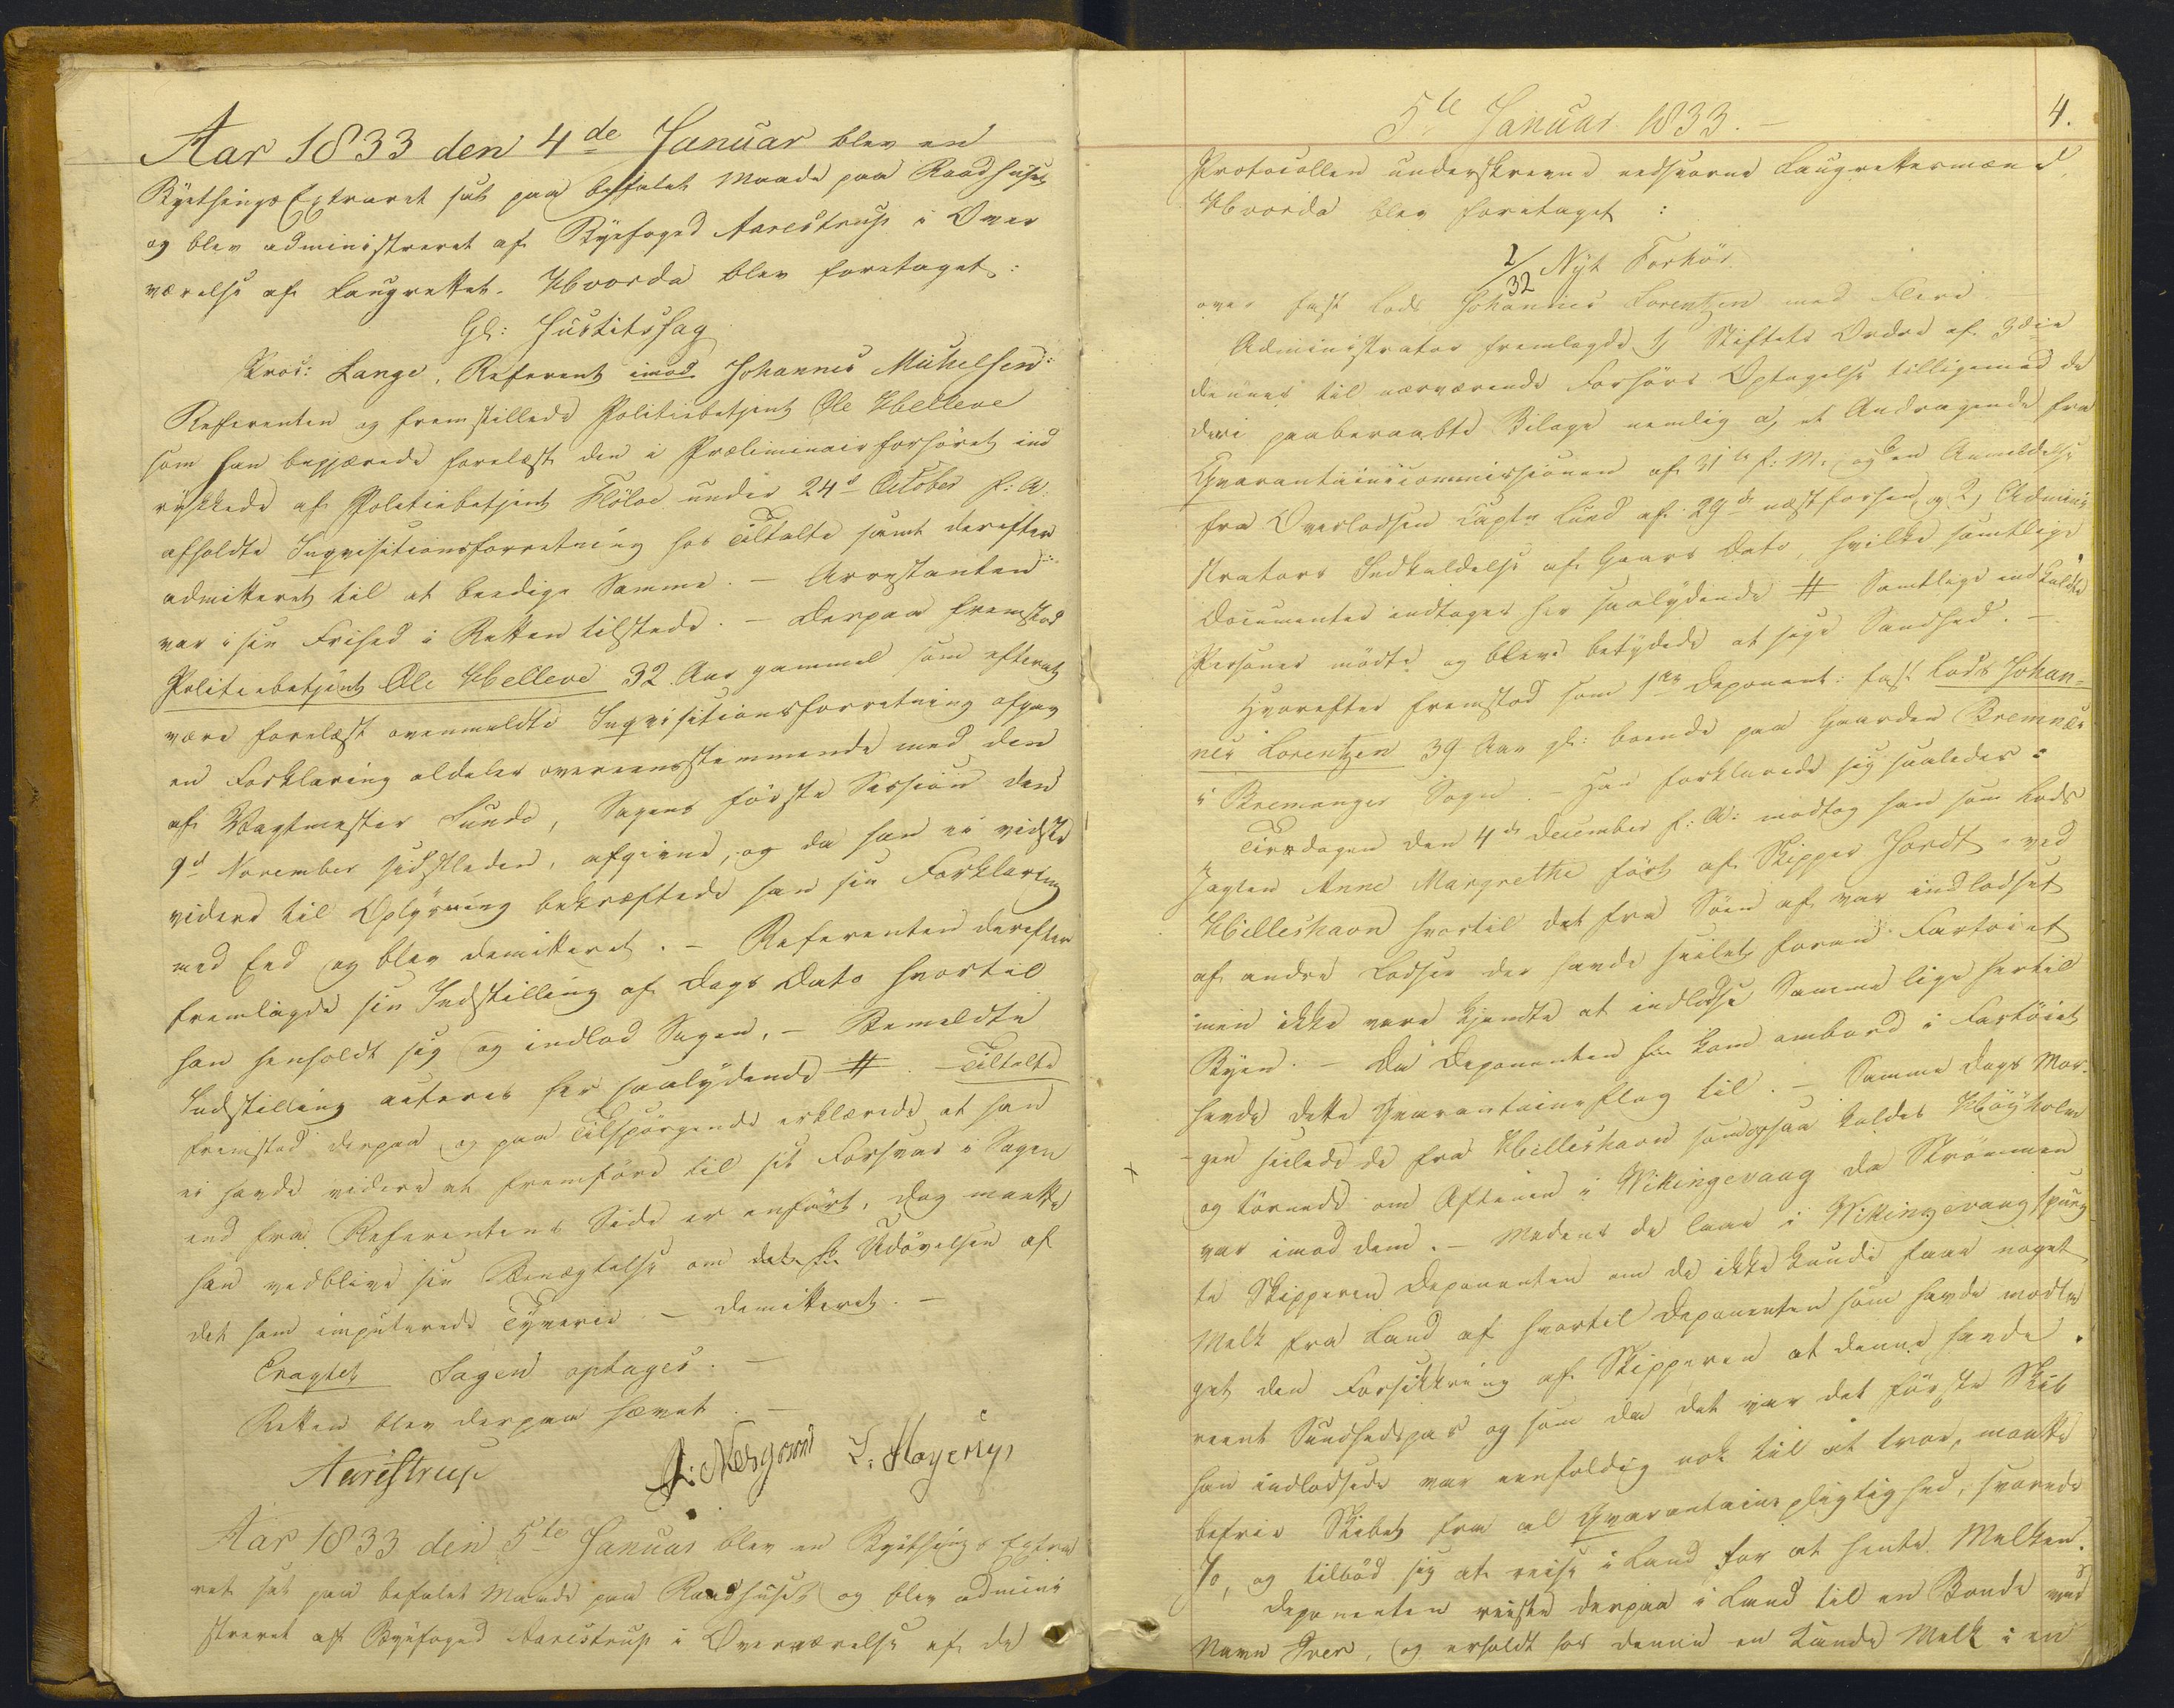 Aar 1833 den 4de Januar blev en
Byethings Extraret sat paa befalet Maade paa Raadhuset
og blev administreret af Byefoged Aarestrup i Over
værelse af Laugrettet. Hvorda blev foretaget:
Gl: Justitssag
Proc: Lange, Referent imod Johannes Michelsen:
Referenten og fremstillede Politiebetjent Ole Helleve
som han begjærede forelæst den i Præliminairforhöret ind
rykkede af Politiebetjent Flöloe under 24d October f: A:
afholdte Inqvisitionsforretning hos Tiltalte samt derefter
admitteret til at beedige Samme. – Arrestanten
var i sin Frihed i Retten tilstede. – Derpaa fremstod
Politiebetjent Ole Helleve 32 Aar gammel som efterat
være forelæst ovenmeldte Inqvisitionsforretning afgav
en Forklaring aldeles overeensstemmende med den
af Vagtmester Sunde, Sagens förste Session den
9d November sidstleden, afgivne, og da han ei vidste
videre til Oplysning bekræftede han sin Forklaring
med Eed og blev demitteret. – Referenten derefter
fremlagde sin Indstilling af Dags Dato hvortil
han henholdt sig og indlod Sagen. – Bemeldte
Indstilling acteres her saalydende #. – Tiltalte
fremstod derpaa og paa Tilspörgende erklærede at han
ei havde videre at fremföre til sit Forsvar i Sagen
end fra Referentens Side er anfört, dog maatte
han vedblive sin Benægtelse om Udövelsen af
det ham imputerede Tyverie. – Demitteret. –
Eragtet Sagen optages. –
Retten blev derpaa hævet. –
Aarestrup
Aar 1833 den 5te Januar blev en Byethings Extra
ret sat paa befalet Maade paa Raadhuset og blev admini
streret af Byefoged Aarestrup i Overværelse af de
5te Januar 1833. –
4.
Protocollen underskrevne edsvorne Laugrettesmænd.
Hvorda blev foretaget:
1/32 Nyt Forhör
over fast Lods Johannes Lorentzen med Flere.
Administrator fremlagde 1) Stiftets Ordre af 3die
dennes til nærværende Forhörs Optagelse tilligemed de
deri paaberaabte Bilage nemlig a, et Andragende fra
Qvarantainecommissionen af 31te f: M: og en Anmeldelse
fra Overlodsen Captn Lund af 29de næst forhen og 2, Admini
strators Indkaldelse af Gaars Dato, hvilke samtlige
Documenter indtages her saalydende # Samtlige indkaldte
Personer mödte og bleve betydede at sige Sandhed. –
Hvorefter fremstod som 1ste Deponent: fast Lods Johan=
nes Lorentzen 39 Aar gl: boende paa Gaarden Bremnes
i Bremanger Sogn. – Han forklarede sig saaledes:
Tirsdagen den 4de December f: A: modtog han som Lods
Jagten Anne Margrethe fört af Skipper Hardt ved
Hilleshavn hvortil det fra Söen af var indlodset
af andre Lodser der havde seilet foran Fartöiet
men ikke vare kjendte at indlodse Samme lige hertil
Byen. – Da Deponenten kom ombord i Fartöiet
havde dette Qvarantaineflag til. – Samme Dags Mor=
gen seilede de fra Hilleshavn som ogsaa kaldes Höyholm
og törnede om Aftenen i Vikingevaag da Strömmen
var imod dem. – Medens de laae i Vikingevaag spurg
te Skipperen Deponenten om de ikke kunde faae noget
Melk fra Land af hvortil Deponenten som havde modta
get den Forsikkring af Skipperen at denne havde
reent Sundhedspas og som da det var det förste Skib
han indlodsede var eenfoldig nok til at troe, maatte
befrie Skibet fra al Qvarantainepligtighed, svarede
Jo, og tilböd sig at reise i Land for at hente Melken.
Deponenten reiste derpaa i Land til en Bonde ved
Navn Iver, og erholdt hos denne en Kande Melk i en